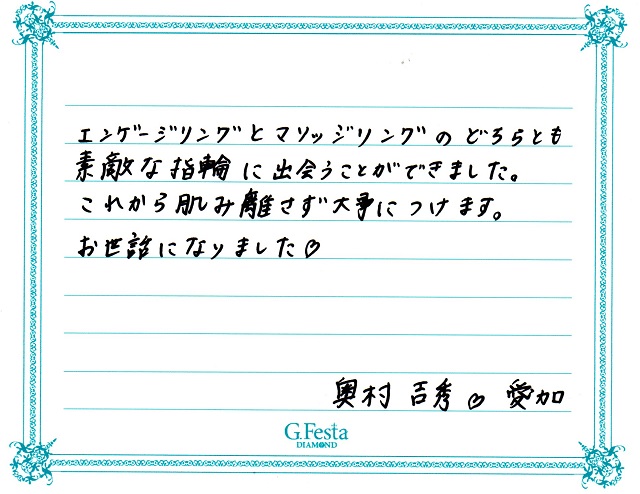 エンゲージリングとマリッジリングのどちらとも
素敵な指輪に出会うことができました。
これから肌み離さず大事につけます。
お世話になりました♡
奥村 吉秀♡ 愛加
G.Festa
DIAMOND